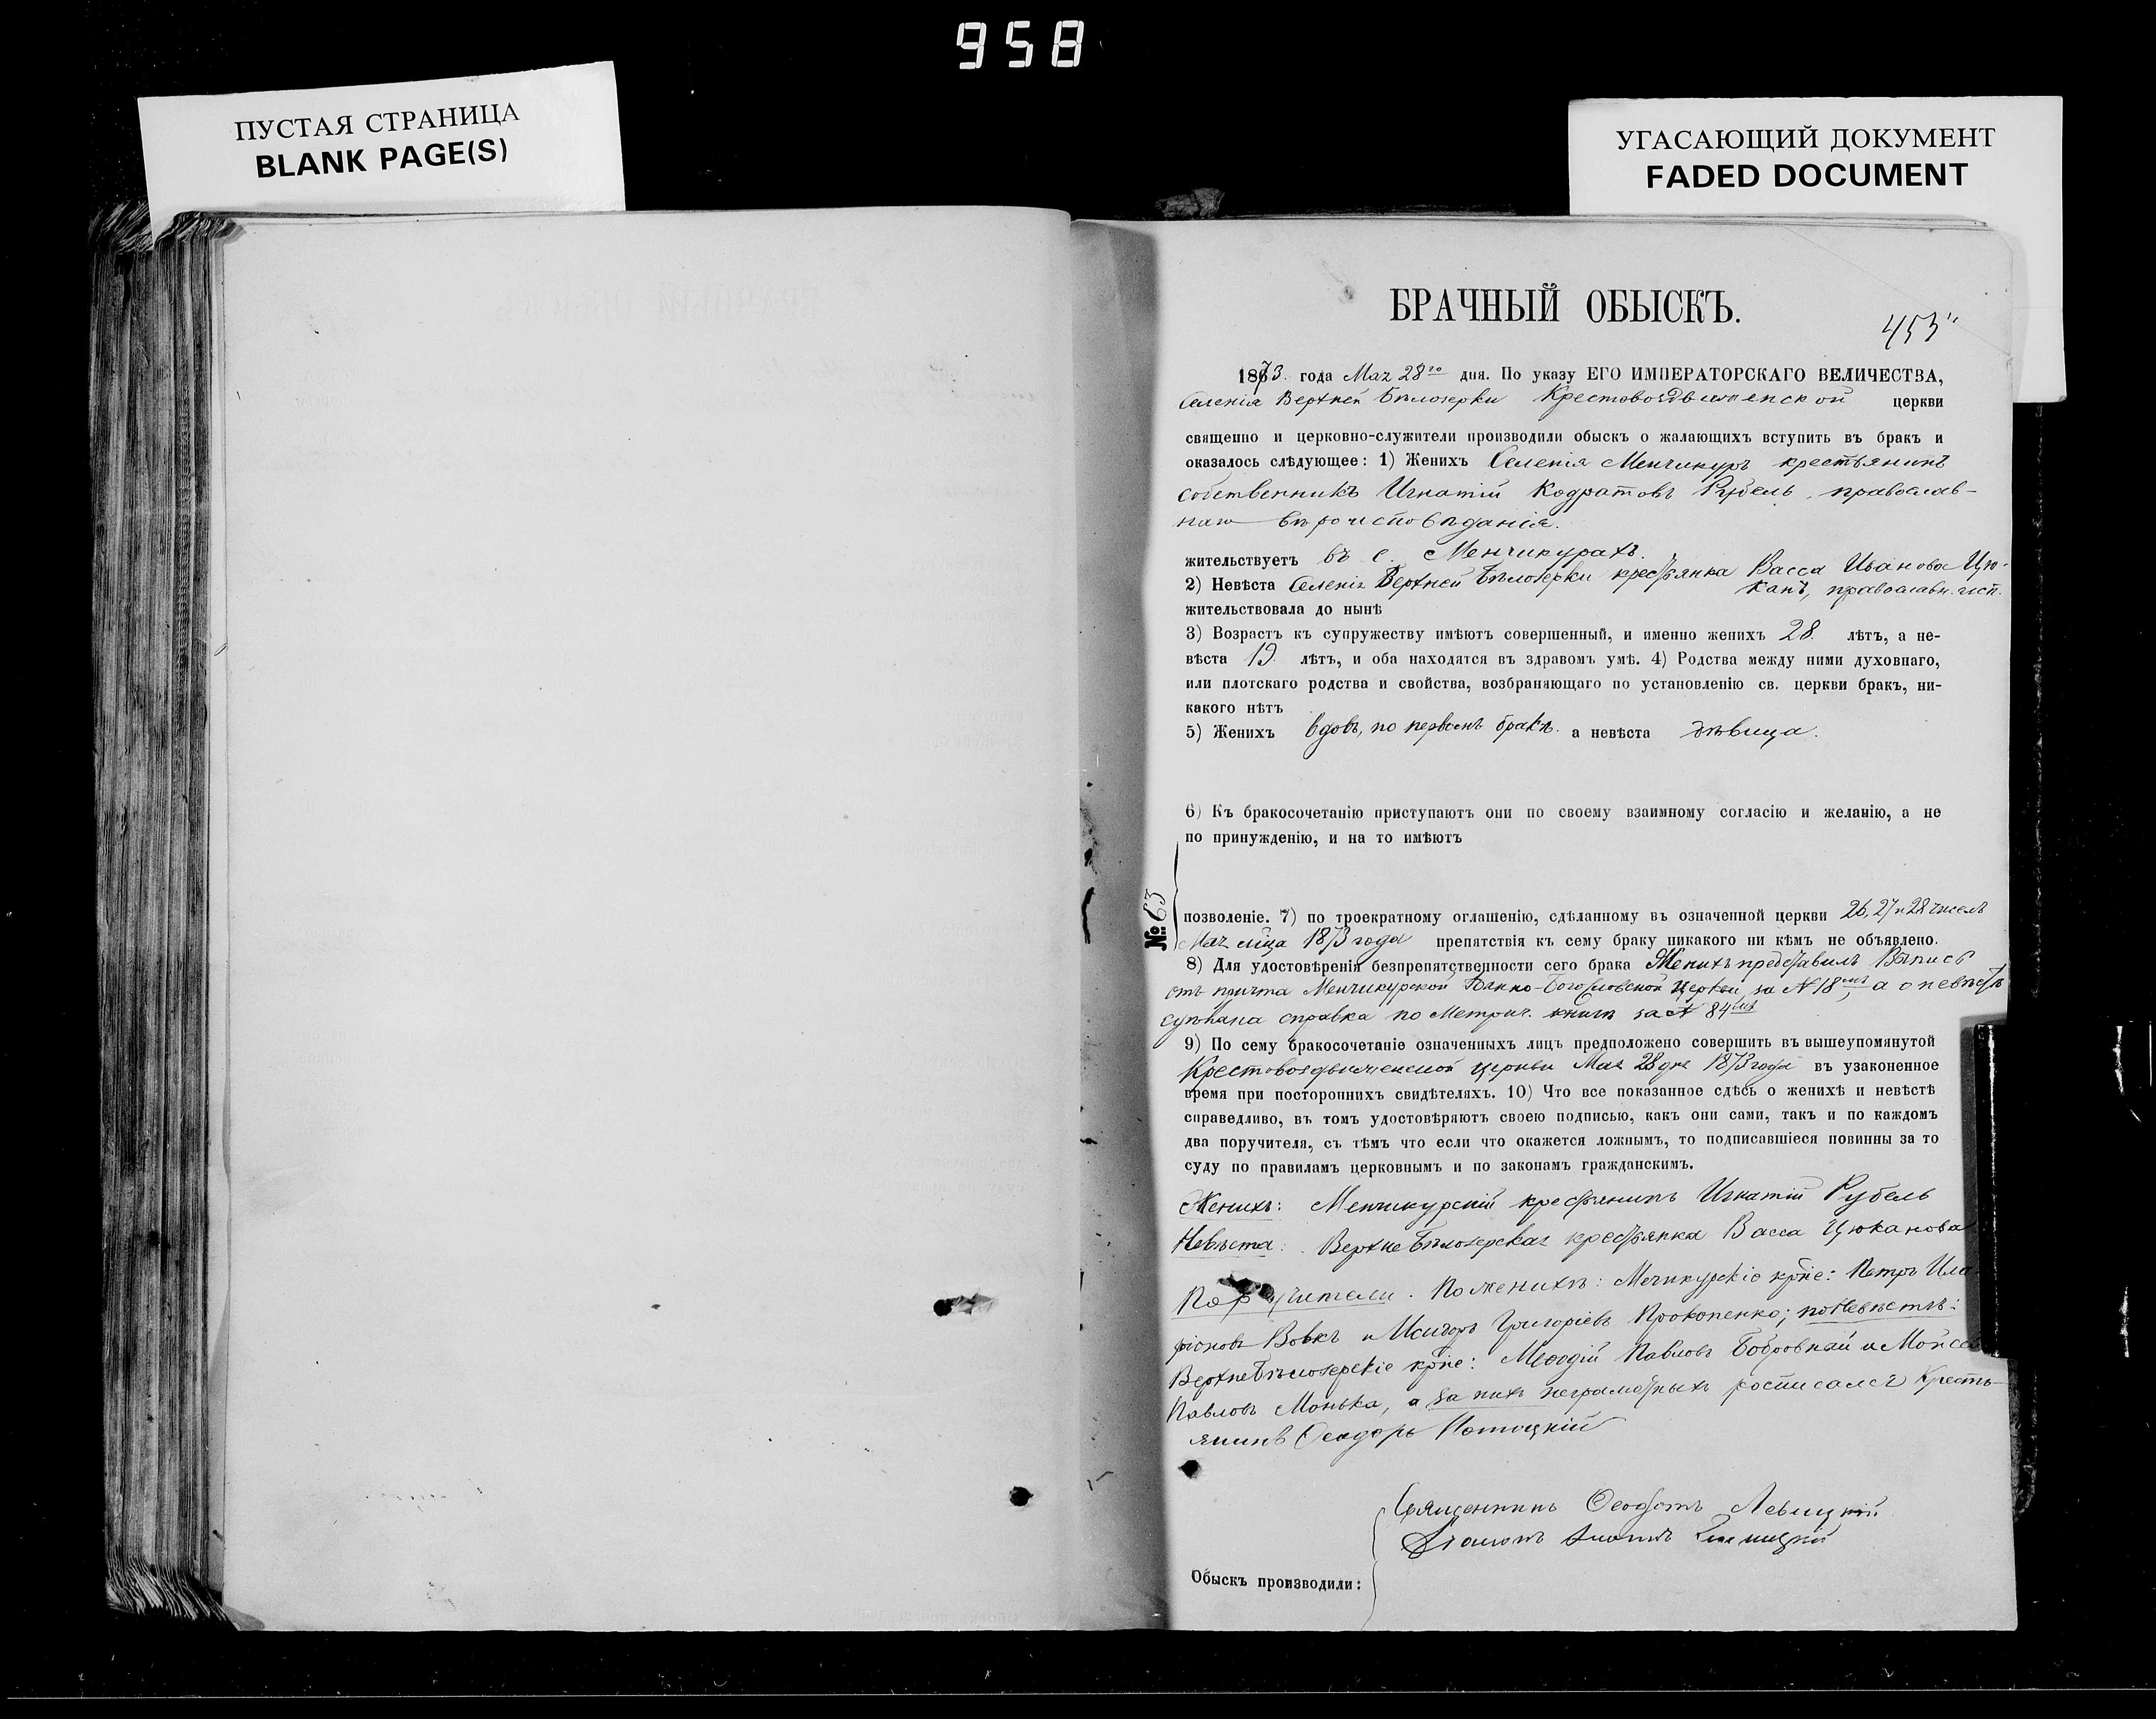 958
ПУСТАЯ СТРАНИЦА
BLANK PAGE(S)
УГАСАЮЩИЙ ДОКУМЕНТ
FADED DOCUMENT
БРАЧНЫЙ ОБЫСКЪ.
453
1873 года Мая 28го дня. По указу ЕГО ИМПЕРАТОРСКАГО ВЕЛИЧЕСТВА,
Селенія Верхней Бѣлозерки Крестовоздвиженской церкви
священно и церковно-служители производили обыскъ о жалающихъ вступить въ бракъ и
оказалось слѣдующее: 1) Женихъ Селенія Менчикуръ крестьянинъ
собственникъ Игнатій Кодратовъ Рубель, православ-
наго вѣроисповѣданія.
жительствуетъ въ с. Менчикурахъ.
2) Невѣста Селенія Верхней Бѣлозерки крестьянка Васса Иванова Цю-
канъ, православн. исп.
жительствовала до нынѣ
3) Возрастъ къ супружеству имѣютъ совершенный, и именно женихъ 28 лѣтъ, а не-
вѣста 19 лѣтъ, и оба находятся въ здравомъ умѣ. 4) Родства между ними духовнаго,
или плотскаго родства и свойства, возбраняющаго по установленію св. церкви бракъ, ни-
какого нѣтъ
5) Женихъ вдовъ, по первомъ бракѣ. а невѣста дѣвица.
6) Къ бракосочетанію приступаютъ они по своему взаимному согласію и желанію, а не
по принужденію, и на то имѣютъ
№ 63
позволеніе. 7) по троекратному оглашенію, сдѣланному въ означенной церкви 26, 27 и 28 чиселъ
Мая мѣца 1873 года препятствія къ сему браку никакого ни кѣмъ не объявлено.
8) Для удостовѣренія безпрепятственности сего брака Женихъ представилъ Выпись
отъ причта Менчикурской Іоанно-Богословской церкви за №18, а о невѣстѣ
справка по Метрич. книгѣ за № 84
9) По сему бракосочетаніе означенныхъ лицъ предположено совершить въ вышеупомянутой
Крестовоздвиженской церкви Мая 28 дня 1873 года въ узаконенное
время при постороннихъ свидѣтеляхъ. 10) Что все показанное сдѣсь о женихѣ и невѣстѣ
справедливо, въ томъ удостовѣряютъ своею подписью, какъ они сами, такъ и по каждомъ
два поручителя, съ тѣмъ что если что окажется ложнымъ, то подписавшіеся повинны за то
суду по правиламъ церковнымъ и по законамъ гражданскимъ.
Женихъ: Менчикурскій крестьянинъ Игнатій Рубель
Невѣста: Верхнебѣлозерская крестьянка Васса Цюканова
Поручители. По женихѣ: Мечикурскіе крне: Петръ Ила-
ріоновъ Вовкъ и Исидоръ Григоріевъ Прокопенко; по невѣстѣ:
Верхнебѣлозерскіе крне: Меѳодій Павловъ Бобровнай и Мойсей
Павловъ Монька, а за нихъ неграмотныхъ росписался кресть-
янинъ Ѳеодоръ Потоцкій
Священникъ Ѳеодотъ Левицкій
Обыскъ производили: